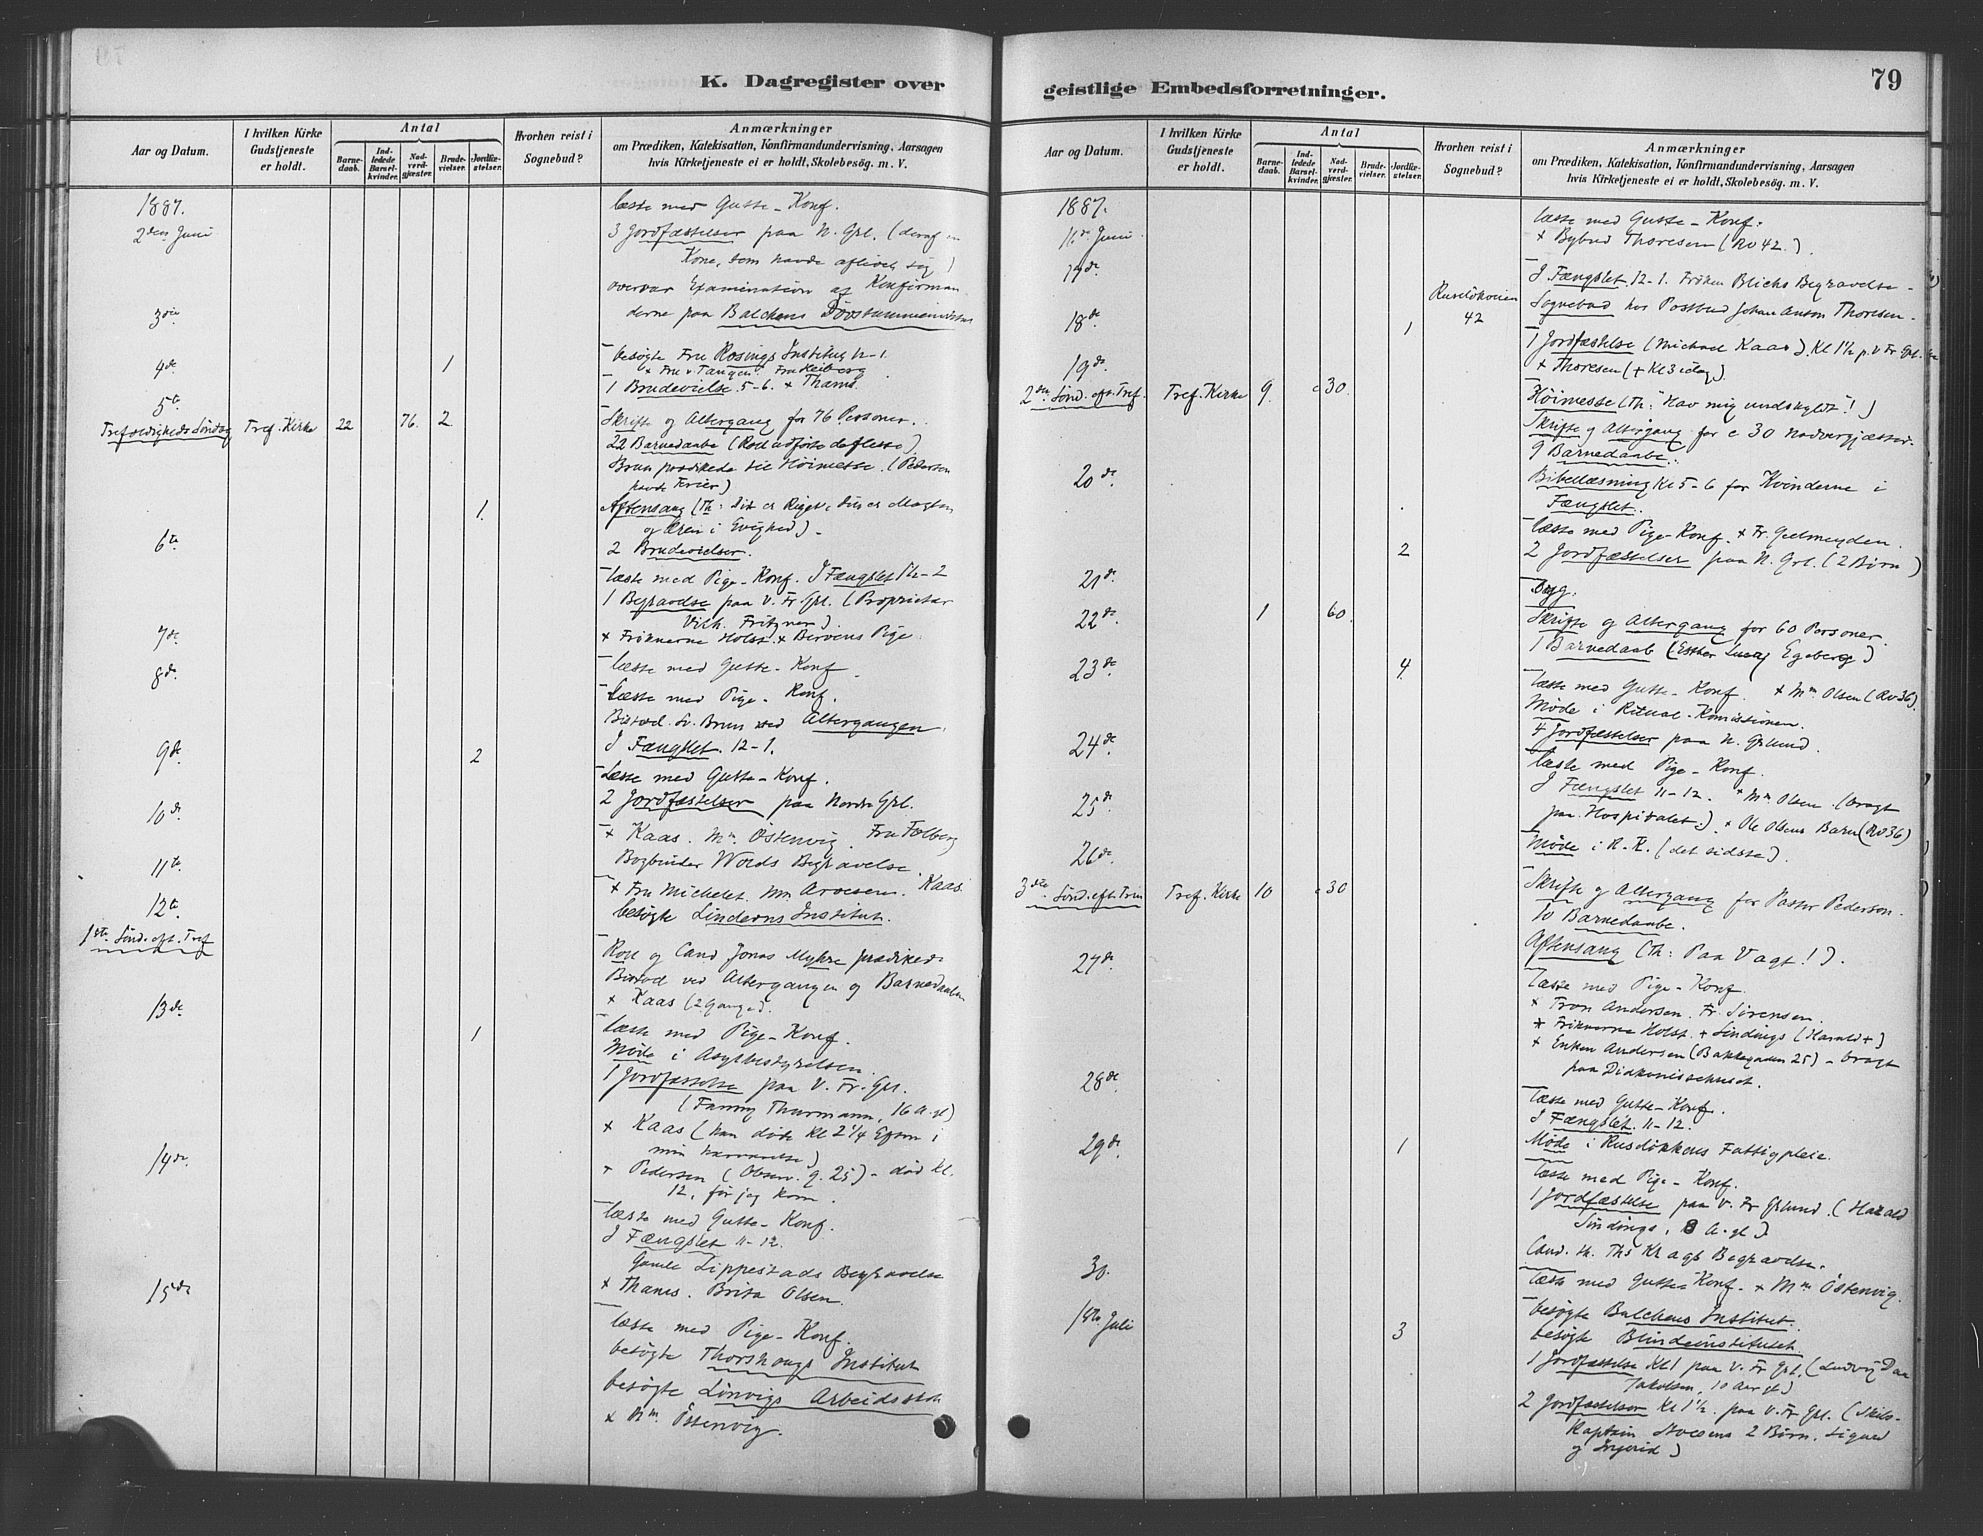 K. Dagregister over
Aar og Datum.
I hvilken Kirke Gudstjeneste er holdt.
Antal
Barnedaab.
Indledede Barselkvinder.
Nadverdgjæster.
Brudevielser.
Jordfæstelser.
Hvorhen reist i Sognebud?
Anmærkninger
om Prædiken, Katekisation, Konfirmandundervisning, Aarsagen
hvis Kirketjeneste ei er holdt, Skolebesøg. m. V.
1887.
læste med Gutte-Konf.
2den Juni
3 Jordfæstelser paa N. Grl. (deraf en
Kone, som havde aflivet sig)
overvar Examination af Konfirman-
3die
derne paa Balchens Døvstummeinstitut
4de
1
besøgte Fru Rosings Institut 12-1.
+ Fru v Tangen. Fru Heiberg
1 Brudevielse. 5-6. + Thams.
5te
Trefoldigheds Søndag Tref. Kirke 22 76. 2
Skrifte og Altergang for 76 Personer.
22 Barnedaabe (Roll udførte de fleste)
Brun prædikede til Høimesse. (Pedersen
havde Ferier)
1.
Aftensang (Th: Dit er Riget, Din er Magten
og Æren i Evighed).
6te
2 Brudevielser.
læste med Pige-Konf. I Fængslet 1½-2
1 Begravelse paa V. Fr. Grl. (Proprietær
Vilh. Fritzner).
7de
+ Frøknerne Holst. +
Pige.
8de
læste med Gutte-Konf.
læste med Pige-Konf.
Bistod. Sv. Brun ved Altergangen.
I Fængslet. 12-1.
9de 2
Læste med Gutte-Konf.
2 Jordfæstelser paa Nordre Grl.
10de
+ Kaas. Mm Østenvig. Fru
Bogbinder
Begravelse.
11te
+ Fru Michelet. Mm Arvesen. Kaas
12te
besøgte Linderns Institut.
1ste Sönd. eft. Tref
Roll og Cand Jonas Myhre prædikede
Bistod ved Altergangen og Barnedaaben
+ Kaas (2 Gange).
13de
læste med Pige-Konf.
1
Møde i Asylbestyrelsen.
1 Jordfæstelse paa V. Fr. Grl.
(Fanny Thurmann, 16 A. gl)
+ Kaas (han døde Kl 2 1/4 Efterm i
min Nærværelse)
14de
+ Pedersen (Observ. g. 25) - død Kl.
12, før jeg kom.
læste med Gutte-Konf.
I Fængslet 11-12.
Gamle Lippestads Begravelse
15de
+ Thams. Brita Olsen.
læste med Pige-Konf.
besøgte Thorshaugs Institut
besøgte Linvigs
+ Mm. Östenvig.
geistlige Embedsforretninger.
79
Aar og Datum.
I hvilken Kirke Gudstjeneste er holdt.
Antal
Barnedaab.
Indledede Barselkvinder.
Nadverdgjæster.
Brudevielser.
Jordfæstelser.
Hvorhen reist i Sognebud?
Anmærkninger
om Prædiken, Katekisation, Konfirmandundervisning, Aarsagen
hvis Kirketjeneste ei er holdt, Skolebesøg. m. V.
1887.
læste med Gutte-Konf.
16de Juni
+ Bybud Thoresen (Rv 42.).
17de
I Fængslet 12-1. Frøken Blichs Begravelse.
Ruseløkveien 42
Sognebud hos Postbud Johan Anton Thoresen.
18de 1
1 Jordfæstelse (Michael Kaas). Kl 1½ p. V Fr Grl.
19de
+ Thoresen (+ Kl 3 idag).
2den Sönd. eft. Tref. Tref. Kirke 9. c 30.
Høimesse (Th: "Hav mig undskyldt"!)
Skrifte og Altergang for c 30 Nadvergjæster.
9 Barnedaabe.
20de
Bibellæsning Kl 5-6 for Kvinderne i
Fængslet.
læste med Pige-Konf. + Fr. Geelmeyden.
2
2 Jordfæstelser paa N. Grl. (2 Børn)
21de
Syg.
22de 1 60.
Skrifte og Altergang for 60 Personer
1 Barnedaab (Esther Lucy Egeberg)
23de 4
læste med Gutte-Konf. + Mm Olsen (Rv 36).
Møde i Ritual-Komissionen.
4 Jordfæstelser paa N. Grlund.
24de
læste med Pige-Konf.
I Fængslet 11-12. + Mm Olsen. (bragt
25de
paa Hospitalet.) + Ole Olsens Barn (Rv 36)
26de
Møde i R.K. (det sidste).
3die Sönd. eft. Trin Tref. Kirke 10 c 30
Skrifte og Altergang for Pastor Pedersen.
10 Barnedaabe.
Aftensang (Th: Paa Vagt!).
27de
læste med Pige-Konf.
+ Tron Andersen. Fr. Sørensen.
+ Frøknerne Holst. + Sindings (Harald +)
+ Enken Andersen (Bakkegaden 25) - bragt
paa Diakonissehuset.
28de
læste med Gutte-Konf.
I Fængslet. 11-12.
Møde i Rusløkkens Fattigpleie.
29de 1
læste med Pige-Konf.
1 Jordfæstelse paa V. Fr Grlund. (Harald
Sindings, 8 A. gl)
Cand. th. Ths Kragh Begravelse.
30.
læste med Gutte-Konf. + Mm Östenvig.
1ste Juli
besøgte Balchens Institut.
3
besøgte Blindeinstitutet.
1 Jordfæstelse Kl 1 paa V. Fr Grl. (Ludvig Daa
Jakobsen, 10 Aar gl)
2 Jordfæstelser Kl 1½. paa V. Fr Grl. (Skibs-
Kaptein
2 Børn. Sigurd
og Ingerid)